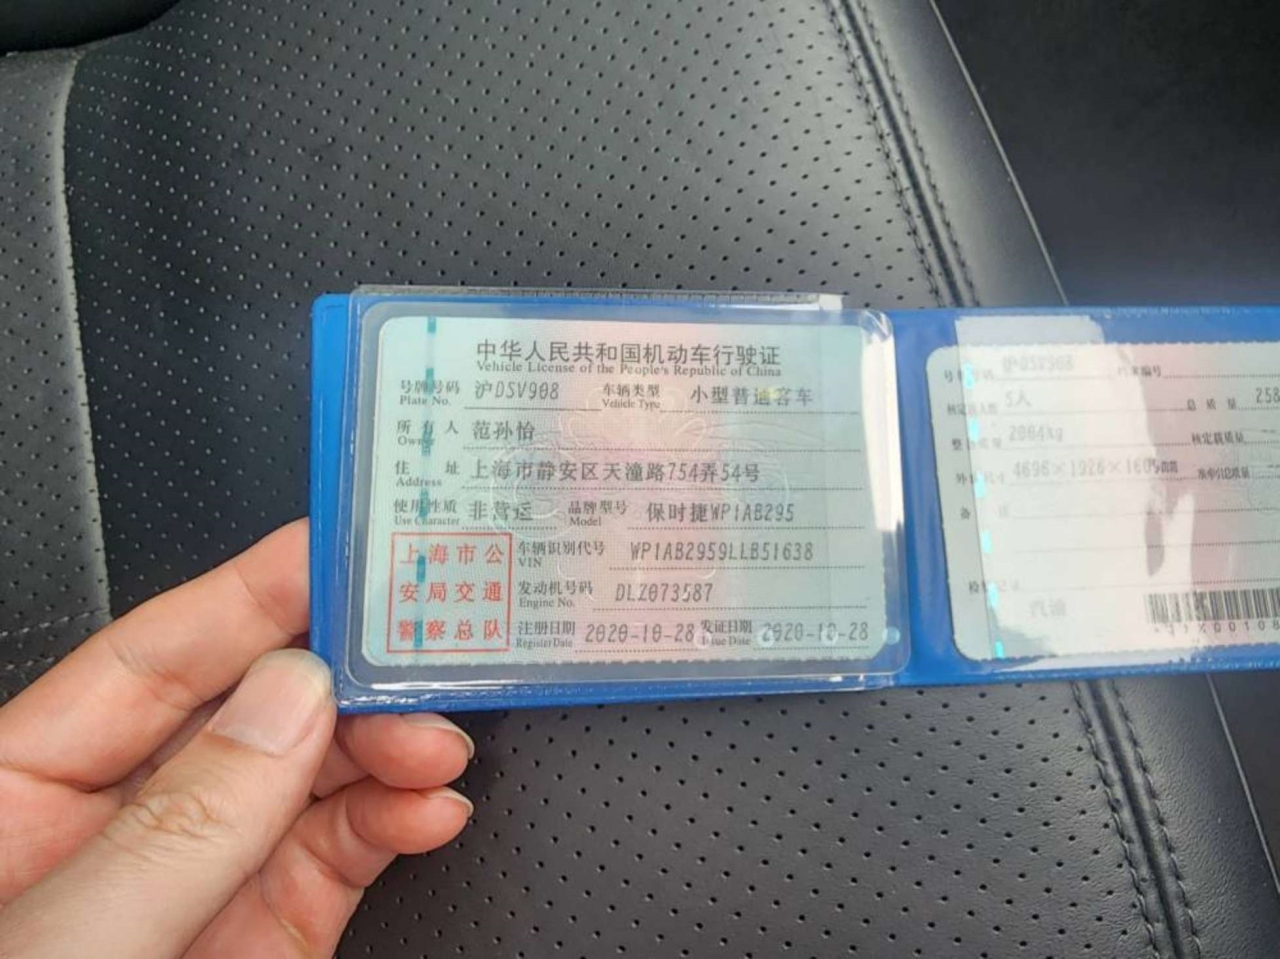 中华人民共和国机动车行驶证
Vehicle License of the People's Republic of China
号牌号码 沪DSV908 车辆类型 小型普通客车
Plate No. Vehicle Type
所有人 范孙怡
Owner
住址 上海市静安区天潼路754弄54号
Address
使用性质 非营运 品牌型号 保时捷WP1AB295
Use Character Model
上海市公
安局交通
警察总队
车辆识别代号 WP1AB2959LLB51638
VIN
发动机号码 DLZ073587
Engine No.
注册日期 2020-10-28 发证日期 2020-10-28
Register Date Issue Date
沪DSV908
核定载人数 5人 总质量 258
整备质量 核定载质量
外廓尺寸
备注
检验记录
汽油